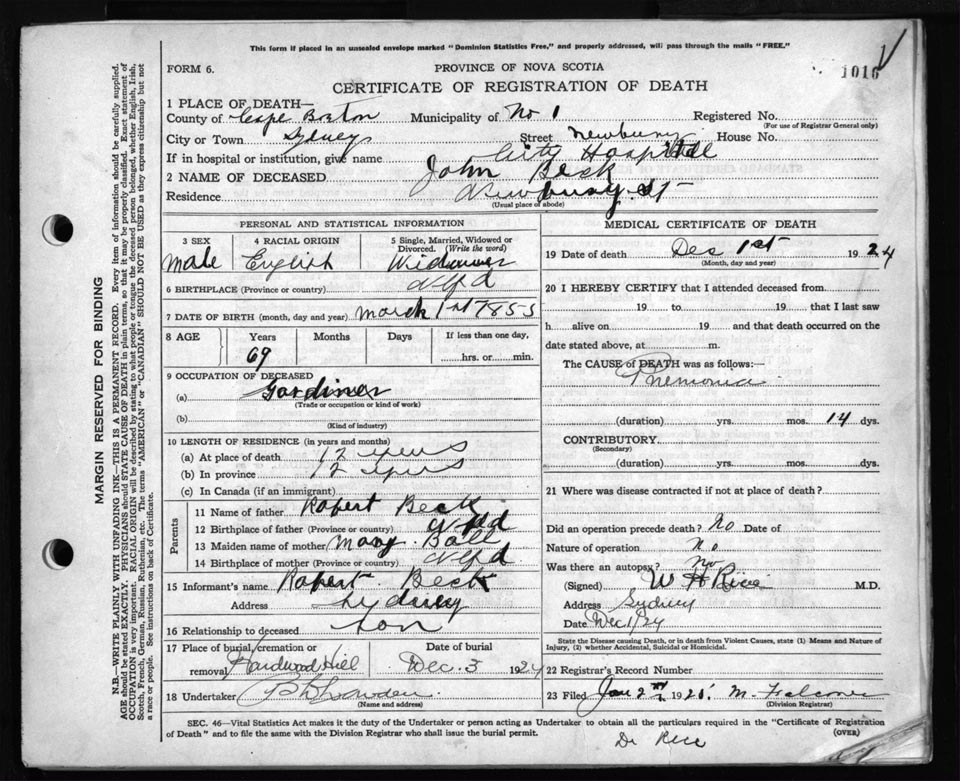 This form if placed in an unsealed envelope marked "Dominion Statistics Free," and properly addressed, will pass through the mails "FREE."
FORM 6.
PROVINCE OF NOVA SCOTIA
1016
CERTIFICATE OF REGISTRATION OF DEATH
1 PLACE OF DEATH—
County of Cape Breton Municipality of No 1 Registered No.
(For use of Registrar General only)
City or Town Sydney Street Newbury House No.
If in hospital or institution, give name City Hospital
2 NAME OF DECEASED John Beck
Residence Newbury St
(Usual place of abode)
PERSONAL AND STATISTICAL INFORMATION
3 SEX 4 RACIAL ORIGIN 5 Single, Married, Widowed or Divorced. (Write the word)
Male English Widower
6 BIRTHPLACE (Province or country) Nfld
7 DATE OF BIRTH (month, day and year) March 1st 1855
8 AGE Years Months Days If less than one day,
69 hrs. or min.
9 OCCUPATION OF DECEASED
(a) Gardiner
(Trade or occupation or kind of work)
(b)
(Kind of industry)
10 LENGTH OF RESIDENCE (in years and months)
(a) At place of death 12 years
(b) In province 12 years
(c) In Canada (if an immigrant)
Parents
11 Name of father Robert Beck
12 Birthplace of father (Province or country) Nfld
13 Maiden name of mother Mary Ball
14 Birthplace of mother (Province or country) Nfld
15 Informant's name Robert Beck
Address Sydney
16 Relationship to deceased son
17 Place of burial, cremation or removal Hardwood Hill
Date of burial Dec. 3 1924
18 Undertaker
(Name and address)
MEDICAL CERTIFICATE OF DEATH
19 Date of death Dec 1st 1924
(Month, day and year)
20 I HEREBY CERTIFY that I attended deceased from
19 to 19 that I last saw
h alive on 19 and that death occurred on the
date stated above, at m.
The CAUSE of DEATH was as follows:—
Pnemonia
(duration) yrs. mos. 14 dys.
CONTRIBUTORY.
(Secondary)
(duration) yrs. mos. dys.
21 Where was disease contracted if not at place of death?
Did an operation precede death? No Date of
Nature of operation no
Was there an autopsy? No
(Signed) W H Rice M.D.
Address Sydney
Date Dec 1/24
State the Disease causing Death, or in death from Violent Causes, state (1) Means and Nature of
Injury, (2) whether Accidental, Suicidal or Homicidal.
22 Registrar's Record Number
23 Filed Jan 2 1925
(Division Registrar)
SEC. 46—Vital Statistics Act makes it the duty of the Undertaker or person acting as Undertaker to obtain all the particulars required in the "Certificate of Registration
of Death" and to file the same with the Division Registrar who shall issue the burial permit.
(OVER)
Dr Rice
MARGIN RESERVED FOR BINDING
N.B.—WRITE PLAINLY WITH UNFADING INK—THIS IS A PERMANENT RECORD. Every item of information should be carefully supplied.
AGE should be stated EXACTLY. PHYSICIANS should STATE CAUSE OF DEATH in plain terms, so that it may be properly classified. Exact statement of
OCCUPATION is very important. RACIAL ORIGIN will be described by stating to what people or tongue the deceased person belonged, whether English, Irish,
Scotch, French, German, Russian, Ruthenian, etc. The terms "AMERICAN" or "CANADIAN" SHOULD NOT BE USED as they express citizenship but not
a race or people. See instructions on back of Certificate.